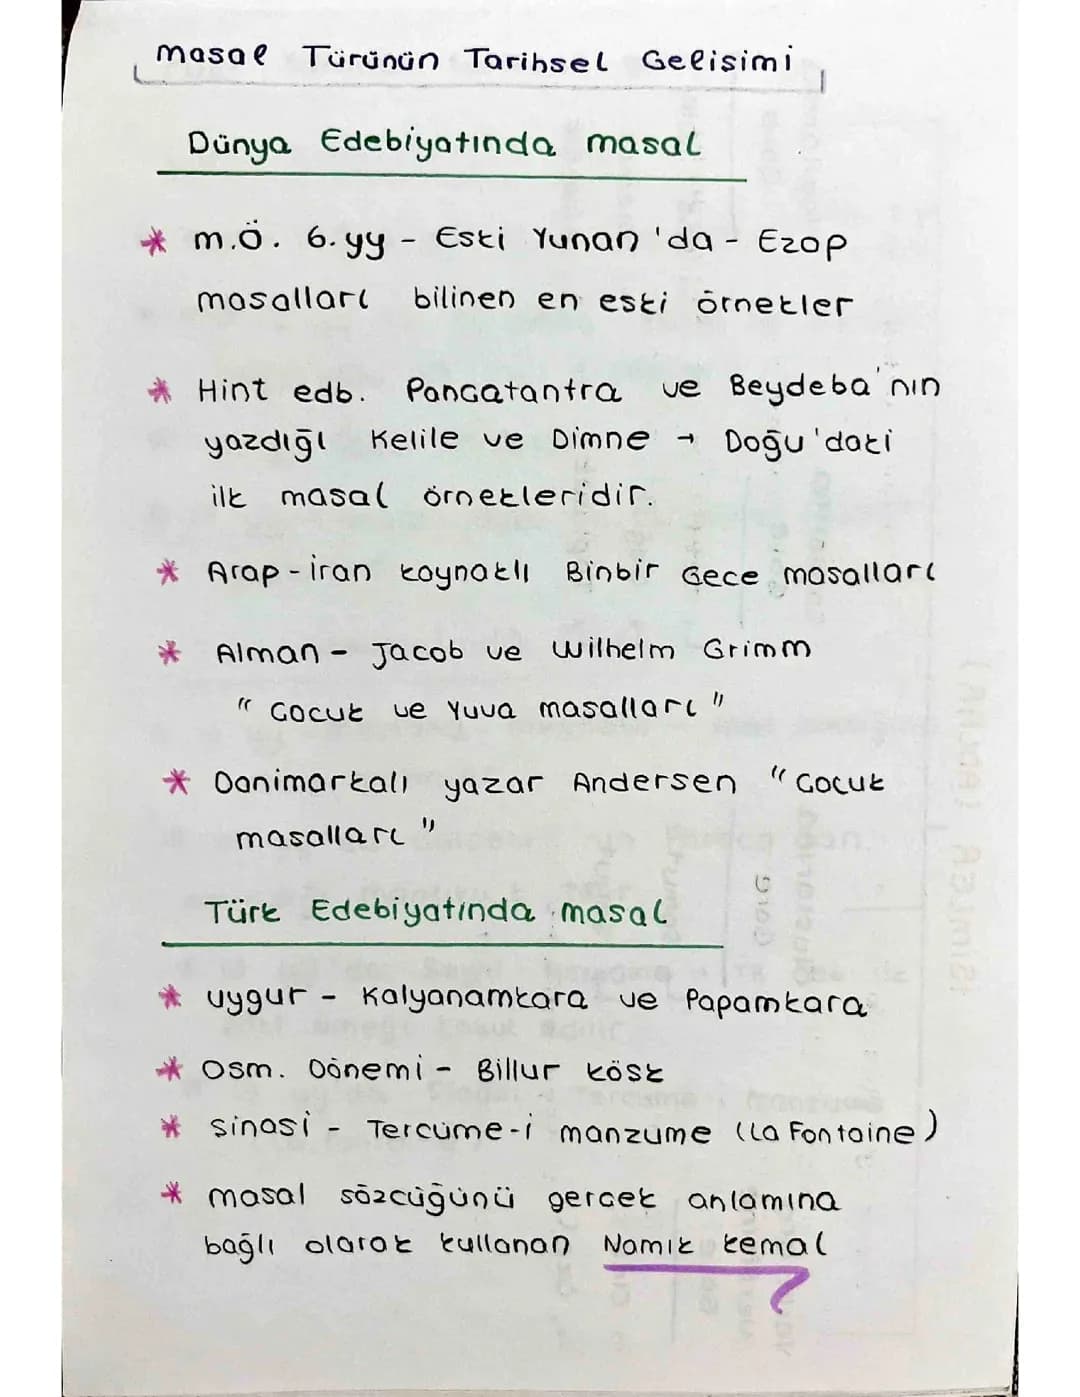 Masal Türünün Tarihsel Gelisimi
Dünya Edebiyatında masal
* M.Ö. 6.yy - Eski Yunan'da - Ezop
masalları bilinen en eski örnekler
* Hint edb. Pancatantra ve Beydeba'nın
yazdığı Kelile ve Dimne → Doğu'daki
ilk masal örnekleridir.
* Arap-İran kaynaklı Binbir Gece masalları
* Alman - Jacob ve Wilhelm Grimm
"Cocuk ve Yuva masalları"
* Danimarkalı yazar Andersen "Cocuk
masalları"
Türk Edebiyatında masal
* Uygur - Kalyanamkara ve Papamkara
* Osm. Dönemi - Billur Kösk
* Sinasi - Tercume-i manzume (La Fontaine)
* masal sözcüğünü gercek anlamına
bağlı olarak kullanan Namık Kemal